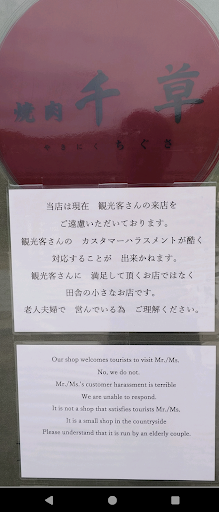 焼肉 千草
やきにく ちぐさ
当店は現在 観光客さんの来店を
ご遠慮いただいております。
観光客さんの カスタマーハラスメントが酷く
対応することが 出来かねます。
観光客さんに 満足して頂くお店ではなく
田舎の小さなお店です。
老人夫婦で 営んでいる為 ご理解ください。
Our shop welcomes tourists to visit Mr./Ms.
No, we do not.
Mr./Ms.'s customer harassment is terrible
We are unable to respond.
It is not a shop that satisfies tourists Mr./Ms.
It is a small shop in the countryside
Please understand that it is run by an elderly couple.